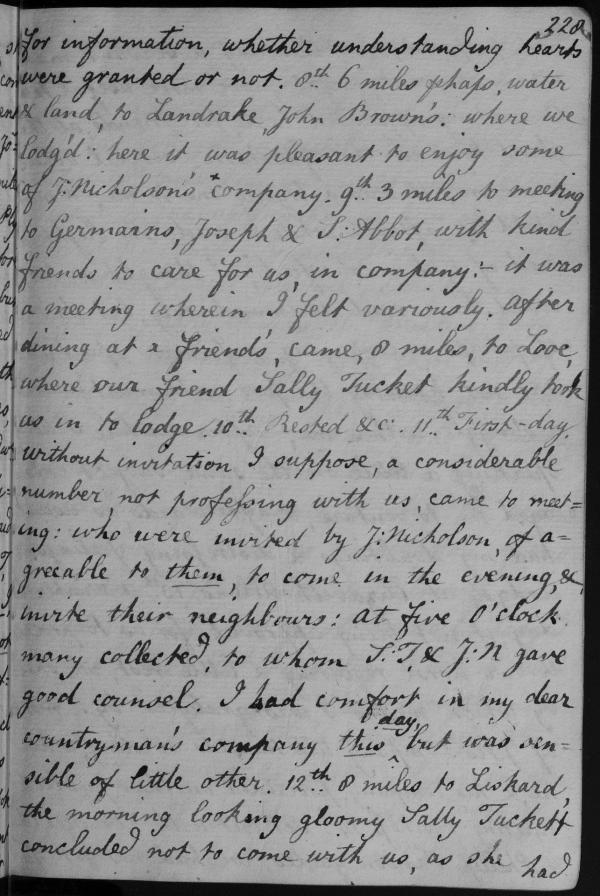 228
for information, whether understanding hearts
were granted or not. 8th 6 miles phaps, water
& land, to Landrake, John Brown's: where we
lodg'd: here it was pleasant to enjoy some
of J: Nicholson's + company. 9th 3 miles to meeting
to Germains, Joseph & S: Abbot, with kind
friends to care for us, in company:- it was
a meeting wherein I felt variously. After
dining at a friend's, came, 8 miles, to Looe,
where our friend Sally Tucket kindly took
us in to lodge. 10th Rested &c: . 11th First-day.
without invitation I suppose, a considerable
number, not professing with us, came to meet=
ing: who were invited by J: Nicholson, if a=
greeable to them, to come in the evening, &
invite their neighbours: at five O'clock
many collected, to whom S: T, & J: N gave
good counsel. I had comfort in my dear
countryman's company this ^ day, but was sen=
sible of little other. 12th 8 miles to Liskard,
the morning looking gloomy Sally Tuckett
concluded not to come with us, as she had